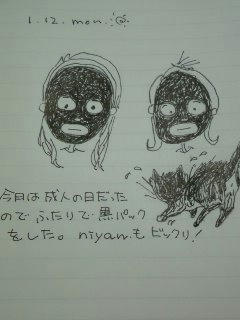 1.12.mon.
今日は成人の日だった
のでふたりで黒パック
をした。niyanもビックリ!